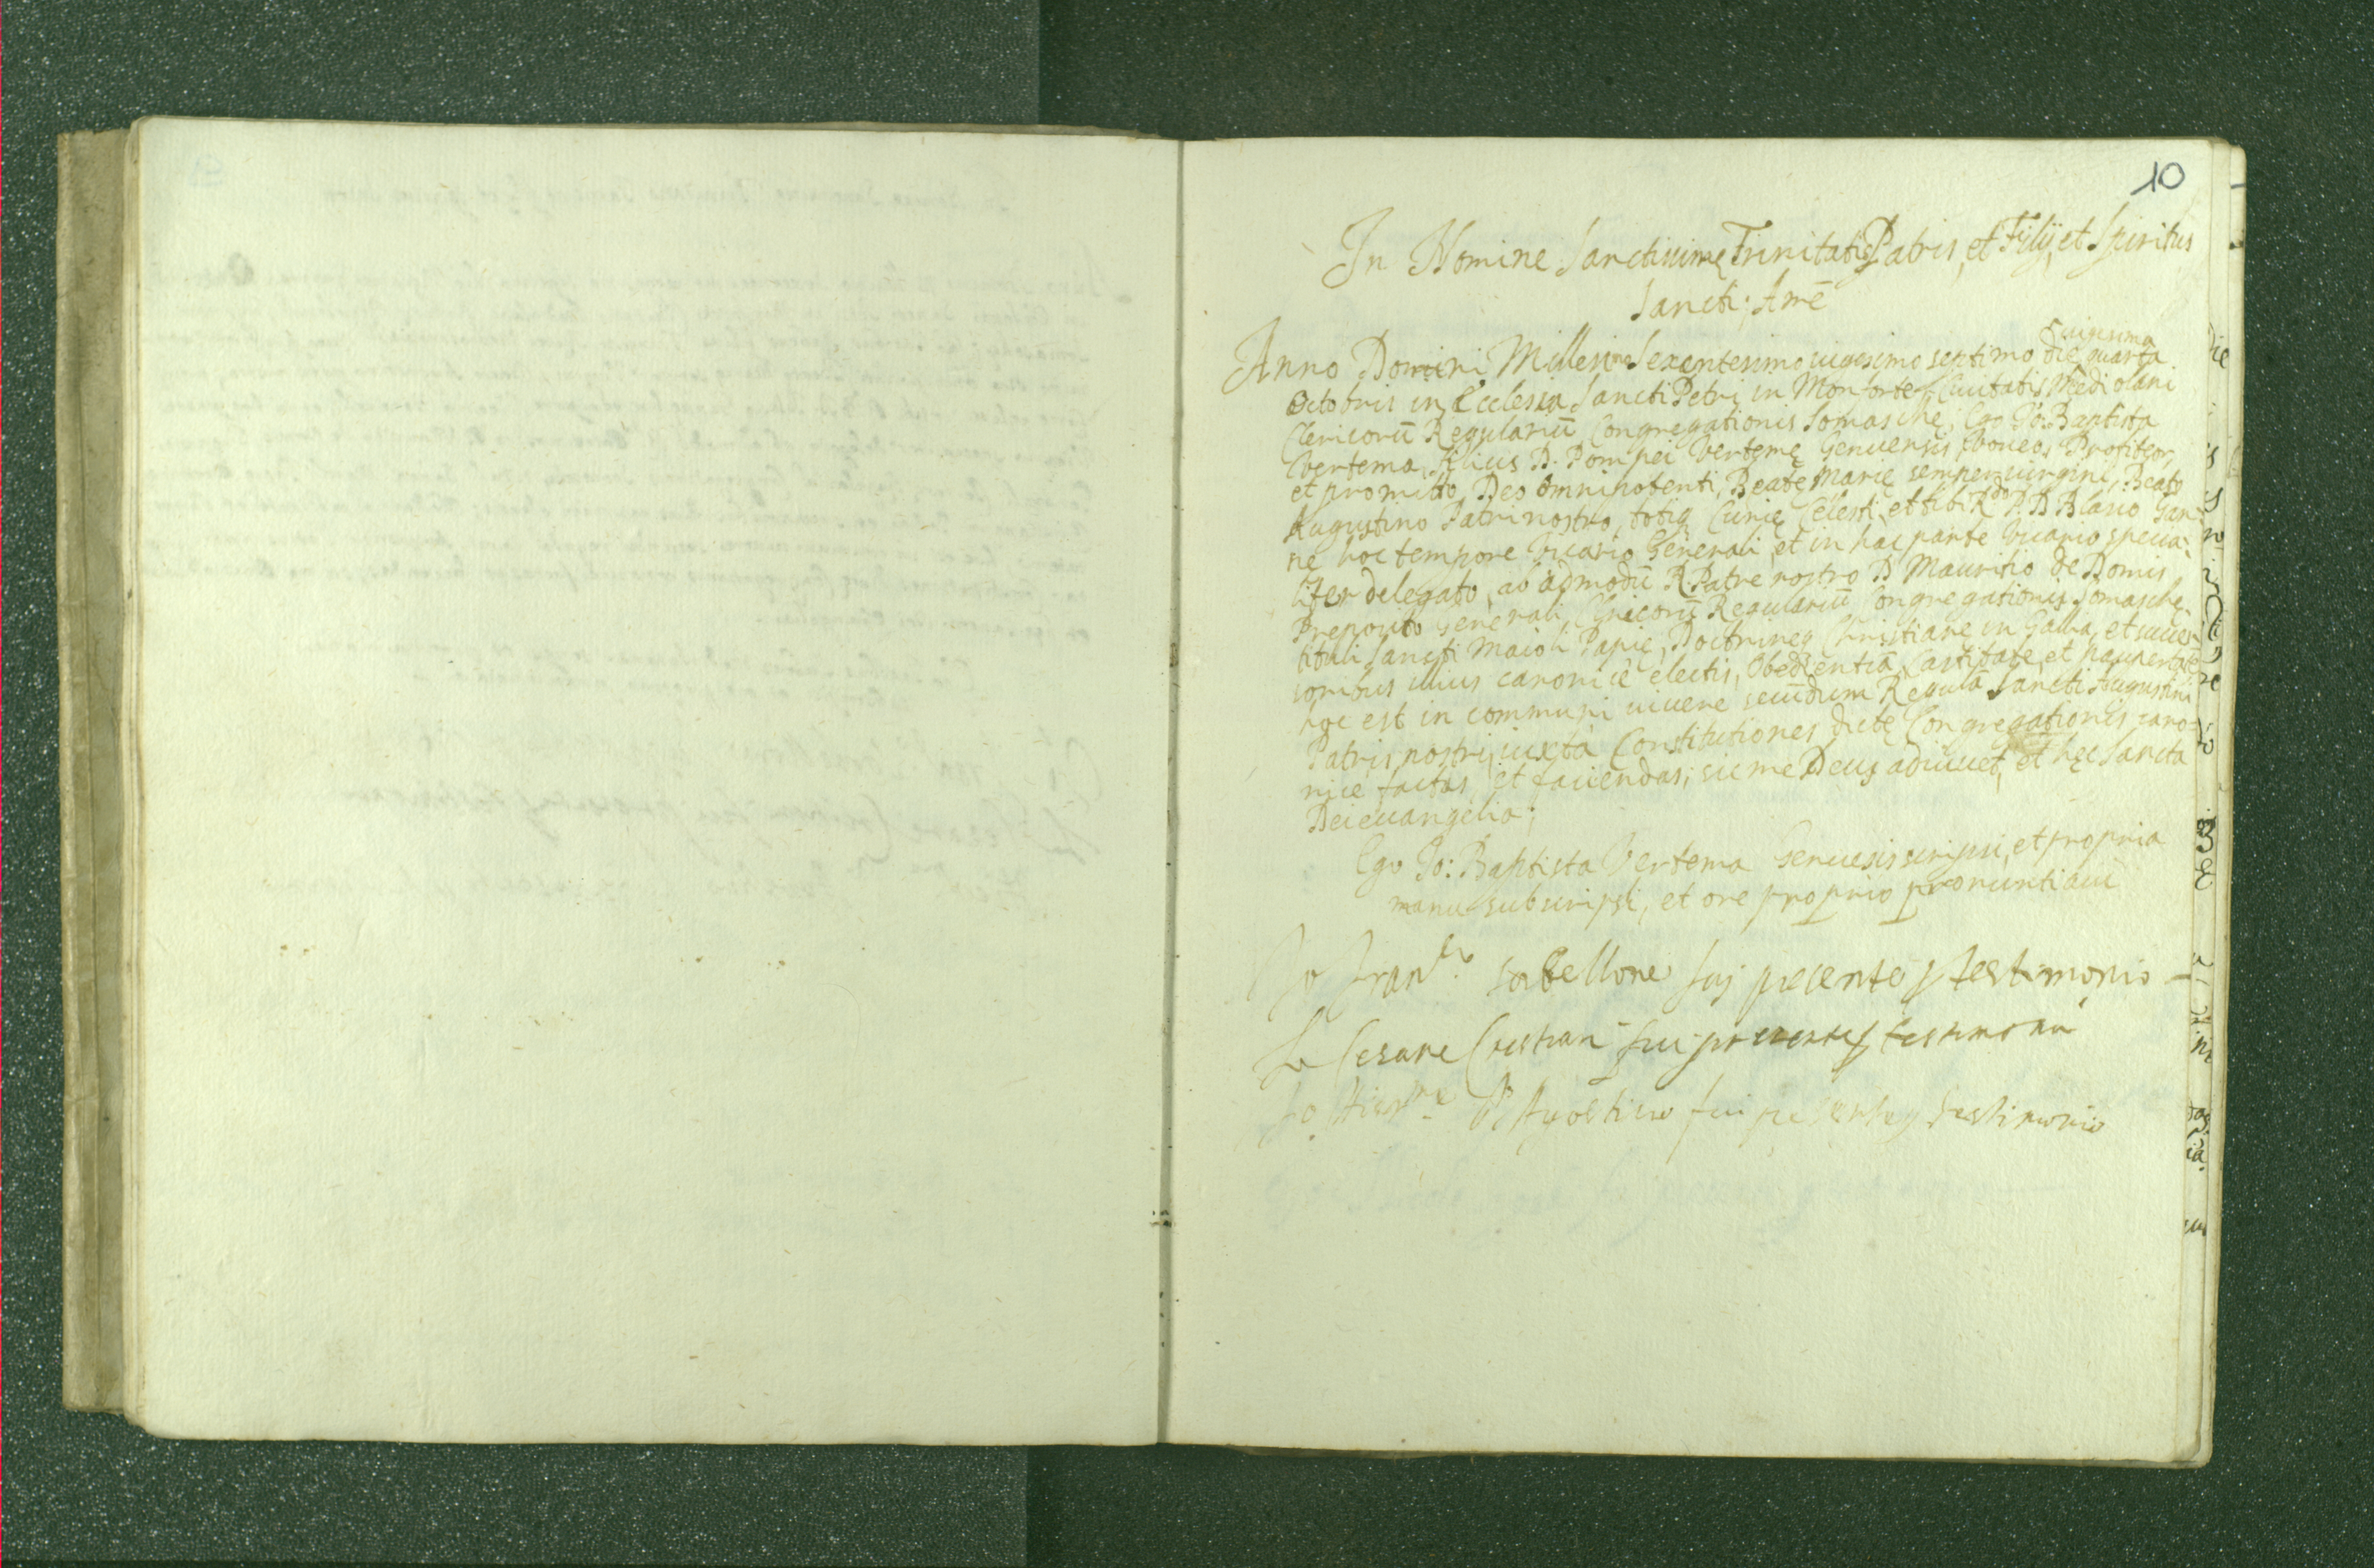 10
In Nomine Sanctissimę Trinitatis Patris, et Fylÿ, et Spiritus
Sancti; Amē
Anno Domini Millesimo Sexcentesimo uigesimo septimo die uigesima quarta
Octobris in Ecclesia Sancti Petri in Monforte Ciuitatis Mediolani
Clericorū Regulariū Congregationis Somaschę; Ego Io: Baptista
Vertema filius D. Pompei Vertemę Genuensis, Voueo, Profiteor,
et promitto Deo omnipotenti, Beatę Marię semper uirgini, Beato
Augustino Patri nostro, totiq Curię Cęlesti, et tibi Rdo P. D. Blasio Gan-
ne hoc tempore Vicario Generali, et in hac parte Vicario specia-
liter delegato, ab admodū R. Patre nostro D Mauritio de Domis
Preposito Generali Clericorū Regulariū Congregationis Somasche
tituli Sancti Maioli Papię, Doctrineq Christiane in Gallia, et succes-
soribus illius canonicè electis, Obedientiā, Castitatē, et paupertatē
hoc est in communi uiuere secundum Regulā Sancti Augustini
Patris nostri, iuxta Constitutiones dictę Congregationis cano-
nice factas, et faciendas; sic me Deus adiuuet, et hęc Sancta
Dei euangelia;
Ego Io: Baptista Vertema Genuesis scripsi, et propria
manu subscripsi, et ore proprio pronuntiaui
Io Franco Sorbellone fuj presente p testimonio
Io Cesare fui presente p testimonio
Io fui presente p testimonio